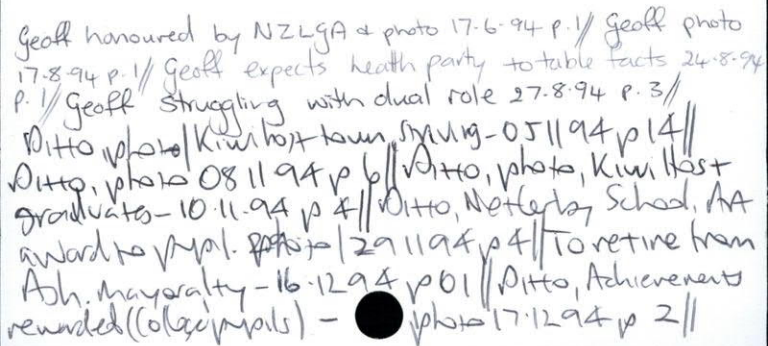 Geoff honoured by NZLGA & photo 17.6.94 p.1// Geoff photo
17.8.94 p.1// Geoff expects heath party to table facts 24.8.94
p.1// Geoff struggling with dual role 27.8.94 p.3//
Ditto, photo/Kiwihost town, - 051194 p14//
Ditto, photo 081194 p 6// Ditto, photo, Kiwi Host
graduates - 10.11.94 p 4// Ditto, Netherby School, AA
award to pupil. photo/291194 p4// To retire from
Ash. mayoralty - 16.1294 p01// Ditto, Achievements
rewarded (College pupils) - photo 17.1294 p 2//